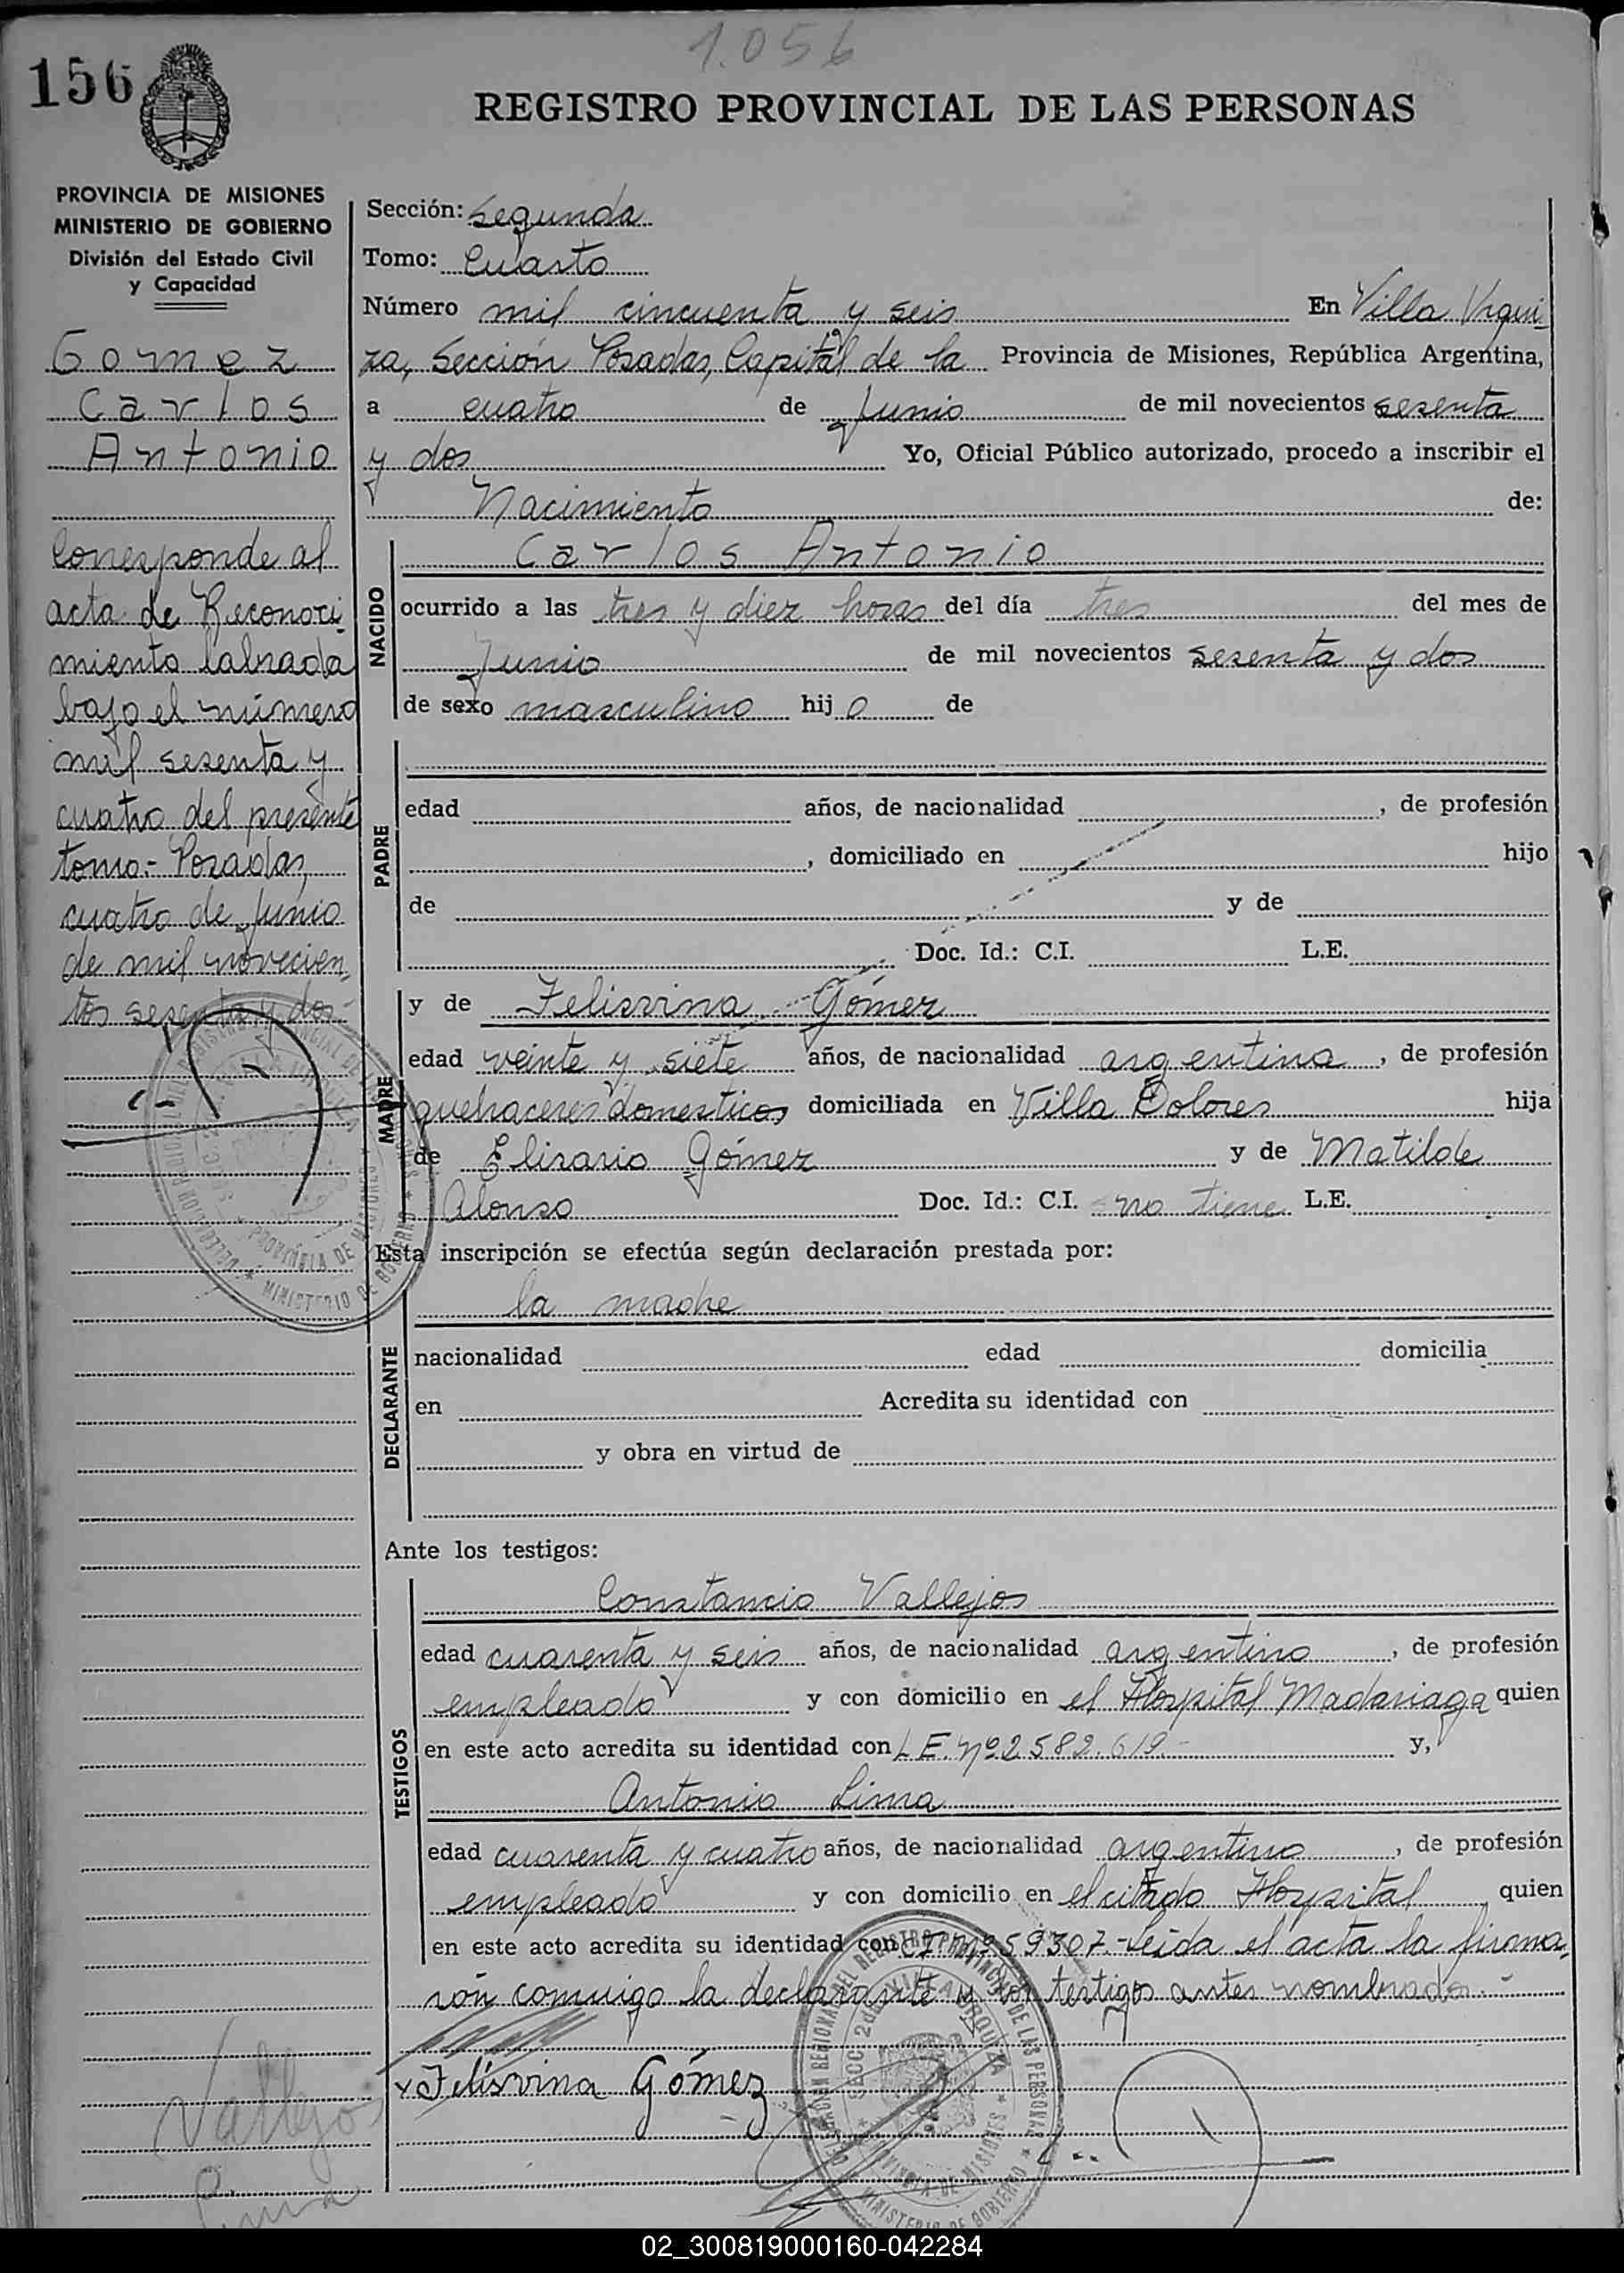 1.056
156
REGISTRO PROVINCIAL DE LAS PERSONAS
PROVINCIA DE MISIONES
MINISTERIO DE GOBIERNO
División del Estado Civil
y Capacidad
Gomez
Carlos
Antonio
Corresponde al
acta de Reconoci-
miento labrada
bajo el número
mil sesenta y
cuatro del presente
tomo.- Posadas,
cuatro de Junio
de mil novecien-
tos sesenta y dos-
Sección: Segunda
Tomo: Cuarto
Número mil cincuenta y seis En Villa Urqui-
za, Sección Posadas, Capital de la Provincia de Misiones, República Argentina,
a cuatro de Junio de mil novecientos sesenta
y dos Yo, Oficial Público autorizado, procedo a inscribir el
Nacimiento de:
NACIDO
Carlos Antonio
ocurrido a las tres y diez horas del día tres del mes de
Junio de mil novecientos sesenta y dos
de sexo masculino hijo de
PADRE
edad años, de nacionalidad , de profesión
, domiciliado en hijo
de y de
Doc. Id.: C.I. L.E.
MADRE
y de Felisvina Gómez
edad veinte y siete años, de nacionalidad argentina, de profesión
quehaceres domesticos domiciliada en Villa Dolores hija
de Elisario Gómez y de Matilde
Alonso Doc. Id.: C.I. no tiene L.E.
Esta inscripción se efectúa según declaración prestada por:
DECLARANTE
la madre
nacionalidad edad domicilia
en Acredita su identidad con
y obra en virtud de
Ante los testigos:
TESTIGOS
Constancio Vallejos
edad cuarenta y seis años, de nacionalidad argentino, de profesión
empleado y con domicilio en el Hospital Madariaga quien
en este acto acredita su identidad con L.E. Nº 2.582.619.- y,
Antonio Lima
edad cuarenta y cuatro años, de nacionalidad argentino, de profesión
empleado y con domicilio en el citado Hospital quien
en este acto acredita su identidad con C.I. Nº 59307.- Leida el acta la firma-
rón conmigo la declarante y los testigos antes nombrados.-
x Felisvina Gómez
Vallejos
Lima
02_300819000160-042284